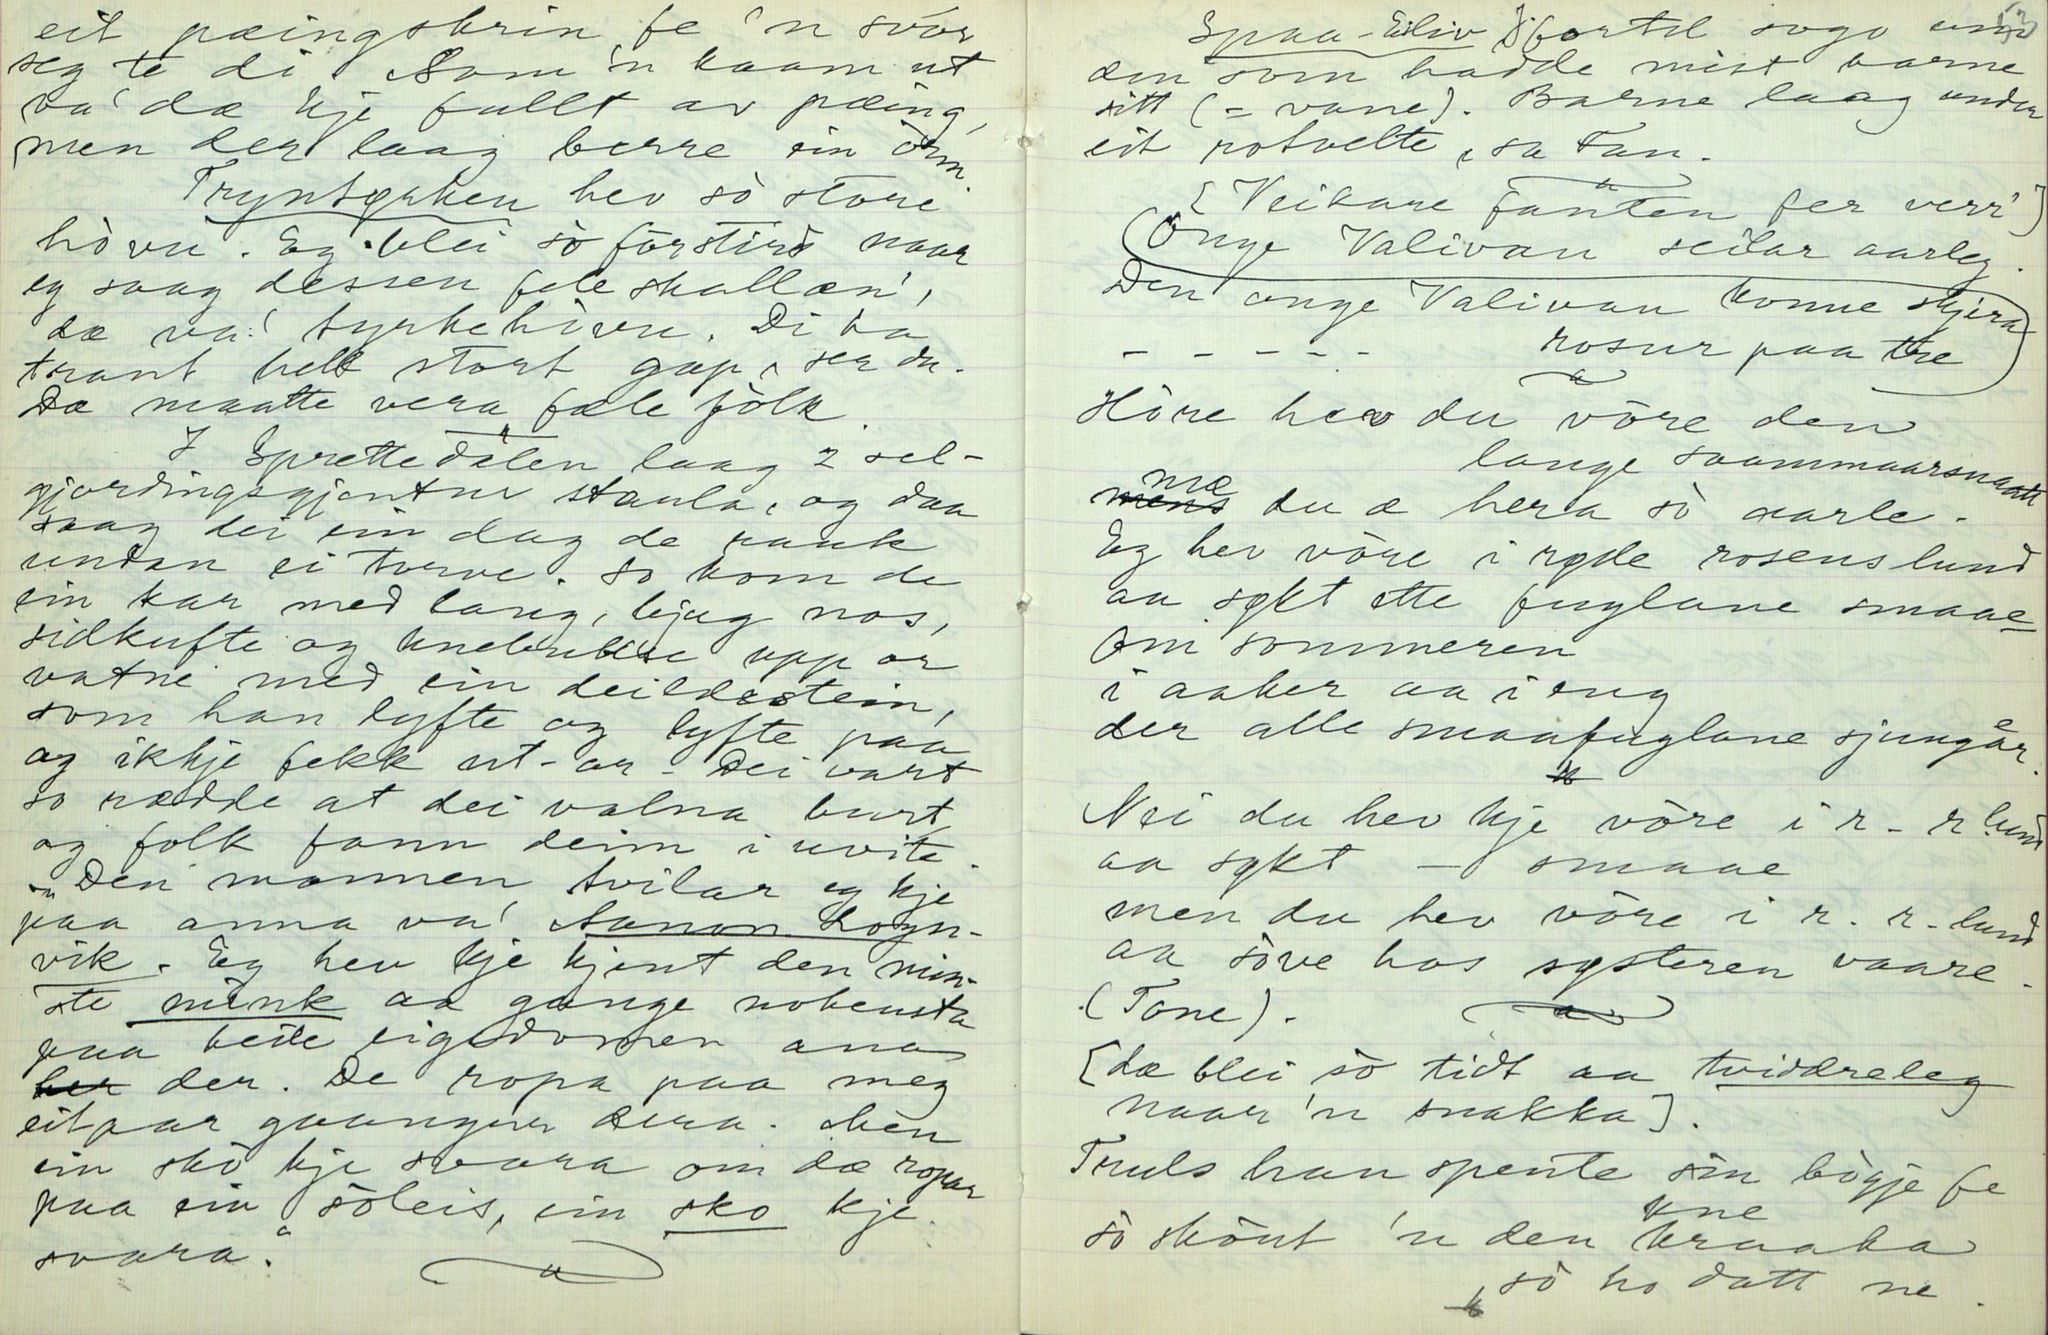 eit pæingskrin fe 'n svor
seg te di. Som 'n kaam ut
va' dæ kje fullt av pæing,
men der laag berre ein òrm.
Tryntsøken hev sò store
hòvu. Eg blei sò fòrstird naar
eg saag dessen fæle skallæn',
dæ va' tyrkehòvu. Di ha
trant helt stort gap, ser du.
Dæ maatte vera fæle fòlk.
I Sprettedalen laag 2 sel-
gjordingsgjentur staula, og daa
saag dei ein dag de rauk
undan ei tuve. So kom de
ein kar med lang, bjug nos,
sidkufte og knebukse upp or
vatne med ein deildestein,
som han lyfte og lyfte paa
og ikkje fekk ut-or. Dei vart
so rædde at dei valna burt,
og folk fann deim i uvite.
„Den mannen tvilar eg kje
paa anna va' Aanon Logn-
vik. Eg hev kje kjent den min-
ste mink aa gange nokensta
paa heile eigedomen anna
her der. De ropa paa meg
eit par gaanger dera. Men
ein sko kje svara om dæ ropar
paa ein sòleis, ein sko kje
svara."
Spaa-Eiliv fortel sogo um 53
den som hadde mist barne
sitt (= vane). Barne laag under
eit rotvelte, sa Fan.
[Veikare fanten fer verr']
Onge Valivan seilar aarleg.
Den onge Valivan konne skjera
- - - - - rosur paa tre
Hòre hev du vòre den
lange saammaarsnaatt
mens mæ du æ hera sò aarle.
Eg hev vòre i røde rosenslund
aa søkt ette fuglane smaae
om sommeren
i aaker aa i eng
der alle smaafuglane sjungår.
Nei du hev kje vòre i r - r lund
aa søkt — smaae
men du hev vòre i r. r - lund
aa sòve hos systeren vaare.
(Tone).
[dæ blei sò tidt aa tviddreleg
naar 'n snakka].
Truls han spente sin bògje fe kne
sò skòut 'n den kraaka
sò ho datt ne.